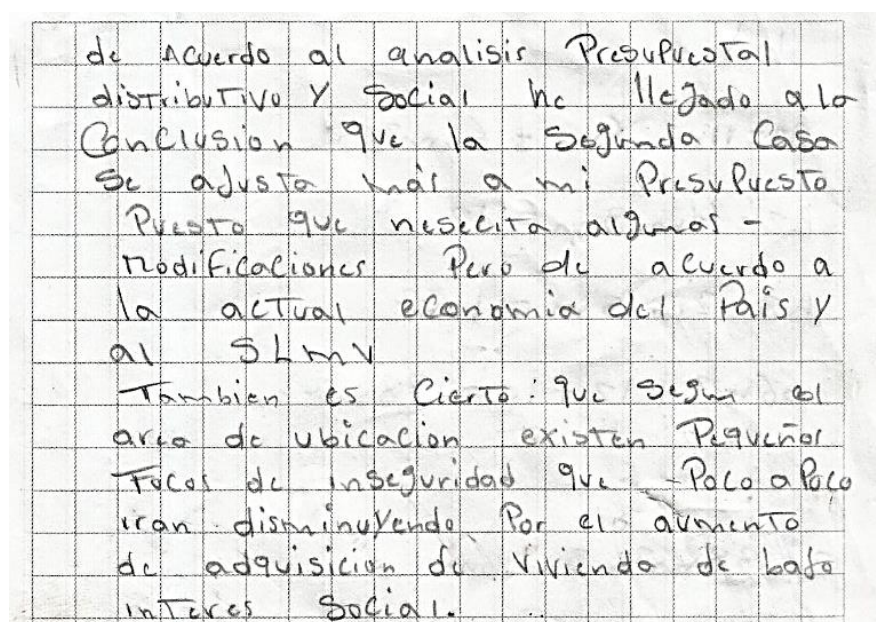 de Acuerdo al analisis Presupuestal
distributivo y Social he llegado a la
Conclusion que la Segunda Casa
se ajusta más a mi Presupuesto
Puesto que nesecita algunas -
modificaciones Pero de acuerdo a
la actual economia del Pais y
al SLmv
Tambien es Cierto: que segun el
area de ubicacion existen Pequeños
Focos de inseguridad que - Poco a Poco
iran disminuyendo Por el aumento
de adquisicion de vivienda de bajo
interes Social.